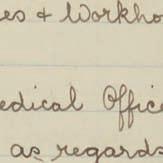 es & Workho
edical Office
as regards